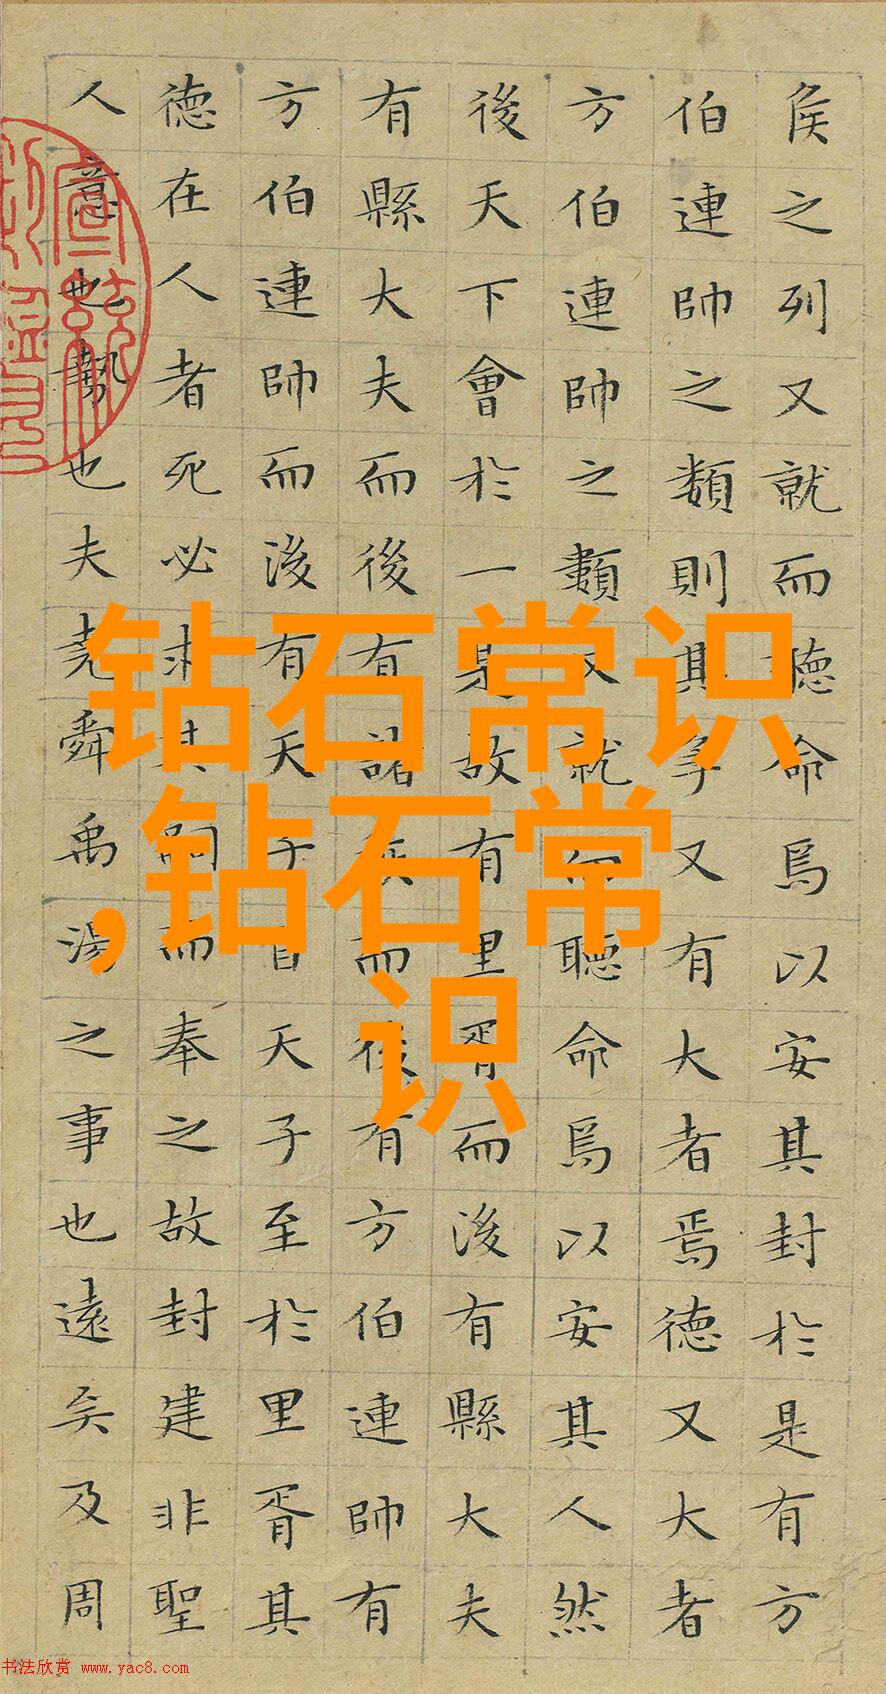 侯之列又就而聽命焉以安其封於是有方
伯連帥之類則其爭又有大者焉德又大者
方伯連帥之類又就而聽命焉以安其人然
後天下會於一是故有里胥而後有縣大夫
有縣大夫而後有諸侯而後有方伯連帥有
方伯連帥而後有天子自天子至於里胥其
德在人者死必求其嗣而奉之故封建非聖
人意也勢也夫堯舜禹湯之事也遠矣及周
钻石常识
,钻石常
识
书法欣赏 www.yac8.com